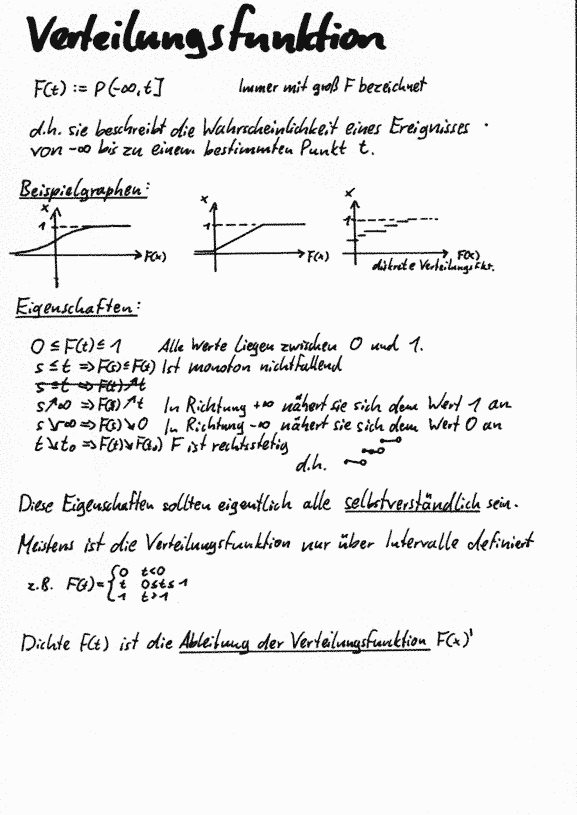 Verteilungsfunktion
F(t) := P(-∞, t] Immer mit groß F bezeichnet
d.h. sie beschreibt die Wahrscheinlichkeit eines Ereignisses
von -∞ bis zu einem bestimmten Punkt t.
Beispielgraphen:
x x x
1 1 1
F(x) F(x) F(x)
diskrete Verteilungsfkt.
Eigenschaften:
0 ≤ F(t) ≤ 1 Alle Werte Liegen zwischen 0 und 1.
s ≤ t ⇒ F(s) ≤ F(t) Ist monoton nichtfallend
s↗∞ ⇒ F(s)↗t In Richtung +∞ nähert sie sich dem Wert 1 an
s↘-∞ ⇒ F(s)↘0 In Richtung -∞ nähert sie sich dem Wert 0 an
t↘t₀ ⇒ F(t)↘F(t₀) F ist rechtsstetig
d.h.
Diese Eigenschaften sollten eigentlich alle selbstverständlich sein.
Meistens ist die Verteilungsfunktion nur über Intervalle definiert
z.B. F(t) = { 0 t<0
t 0≤t≤1
1 t>1
Dichte f(t) ist die Ableitung der Verteilungsfunktion F(x)'